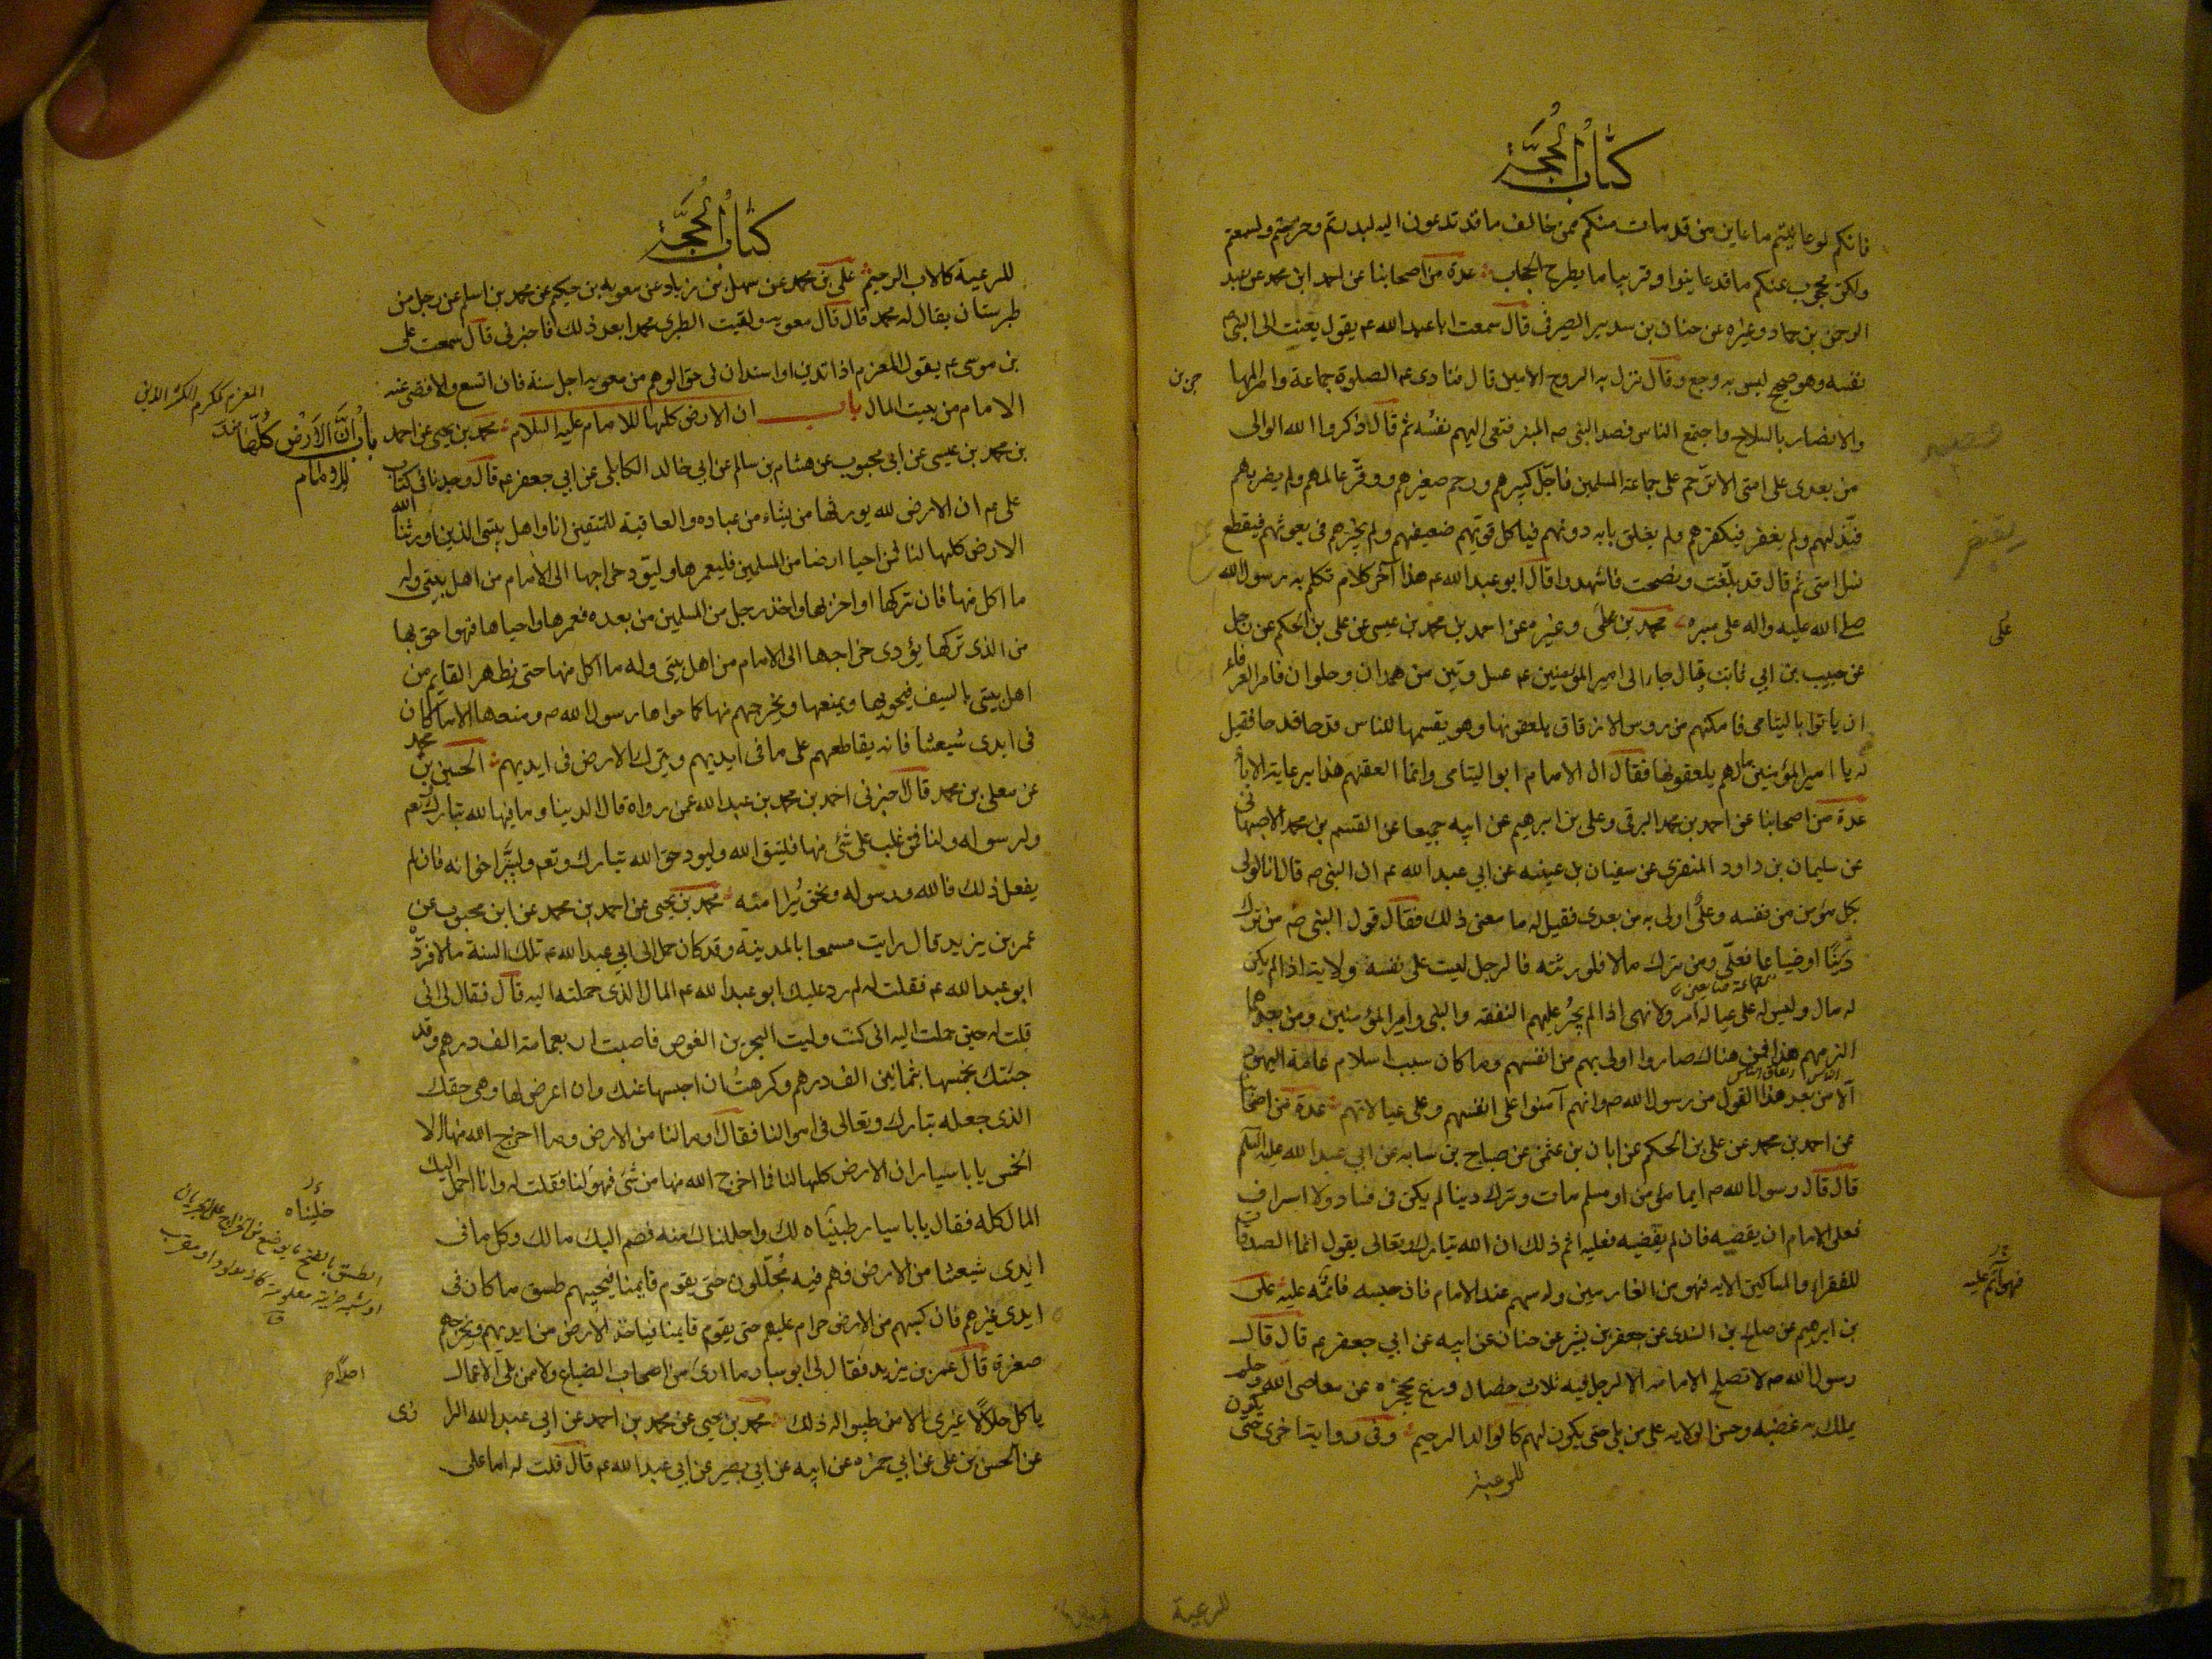 كتاب الحجة
فانكم لو عاينتم ما عاين من قد مات منكم ممن خالف ما قد تدعون اليه لبدرتم وخرجتم ولسمعتم
ولكن محجوب عنكم ما قد عاينوا وقريبا ما يطرح الحجاب عدة من اصحابنا عن احمد ابن محمد عن عبد
الرحمن بن حماد وغيره عن حنان بن سدير الصيرفي قال سمعت ابا عبد الله ع يقول نعيت الى النبي ص
نفسه وهو صحيح ليس به وجع وقال نزل به الروح الامين قال فنادى ع الصلوة جماعة وامر المها
جرين
والانصار بالسلاح واجتمع الناس فصعد النبي ص المنبر فنعى اليهم نفسه ثم قال اذكروا الله الوالى
من بعدى على امتى الا ترحم على جماعة المسلمين فاجل كبيرهم ورحم صغيرهم ووقر عالمهم ولم يضر بهم
فيذلهم ولم يفقر فيكفرهم ولم يغلق بابه دونهم فياكل قويهم ضعيفهم ولم يخبزهم في بعوثهم فيقطع
نسل امتى ثم قال قد بلغت ونصحت فاشهدوا قال ابو عبد الله ع هذا آخر كلام تكلم به رسول الله
صلى الله عليه واله على منبره محمد بن على وغيره عن احمد بن محمد بن عيسى عن على بن الحكم عن رجل
عن حبيب بن ابي ثابت قال جاء الى امير المؤمنين ع عسل وتين من همدان وحلوان فامر العرفاء
ان ياتوا باليتامى فامكنهم من روس الازقاق يلعقونها وهو يقسمها للناس قدحا قدحا فقيل
له يا امير المؤمنين ما لهم يلعقونها فقال ان الامام ابو اليتامى وانما العقتهم هذا برعاية الاباء
عدة من اصحابنا عن احمد بن محمد البرقى وعلى بن ابرهيم عن ابيه جميعا عن القسم بن محمد الاصبهانى
عن سليمان بن داود المنقرى عن سفيان بن عيينه عن ابي عبد الله ع ان النبي ص قال انا اولى
بكل مؤمن من نفسه وعلى اولى به من بعدى فقيل له ما معنى ذلك فقال قول النبي ص من ترك
دينا او ضياعا فعلى ومن ترك مالا فلورثته فالرجل ليست على نفسه ولاية اذا لم يكن
له مال وليس له على عياله امر ولا نهى اذا لم يجر عليهم النفقه والنبي وامير المؤمنين ومن بعدهما
الزمهم هذا فمن هناك صاروا اولى بهم من انفسهم وما كان سبب اسلام عامة اليهود
الا من بعد هذا القول من رسول الله ص وانهم آمنوا على انفسهم وعلى عيالاتهم عدة من اصحابنا
عن احمد بن محمد عن على بن الحكم عن ابان بن عثمن عن صباح بن سيابه عن ابي عبد الله عليه السلم
قال قال رسول الله ص ايما مؤمن او مسلم مات وترك دينا لم يكن في فساد ولا اسراف
فعلى الامام ان يقضيه فان لم يقضيه فعليه اثم ذلك ان الله تبارك وتعالى يقول انما الصدقات
للفقراء والمساكين الايه فهو من الغارمين وله سهم عند الامام فان حبسه فاثمه عليه على
فهو آثم عليه
بن ابرهيم عن صالح بن السندى عن جعفر بن بشير عن حنان عن ابيه عن ابي جعفر ع قال قال
رسول الله ص لا تصلح الامامة الا لرجل فيه ثلاث خصال ورع يحجزه عن معاصى الله وحلم
يملك به غضبه وحسن الولايه على من يلى حتى يكون لهم كالوالد الرحيم وفي رواية اخرى حتى يكون
للرعية
كتاب الحجة
للرعية كالاب الرحيم على بن محمد عن سهل بن زياد عن معويه بن حكيم عن محمد بن اسلم عن رجل من
طبرستان يقال له محمد قال قال معويه ولقيت الطبرى محمدا بعد ذلك فاخبرنى قال سمعت على
بن موسى ع يقول المغرم اذا تدين او استدان في حق الوهم من معويه اجل سنة فان اتسع والا قضى عنه
الامام من بيت المال باب ان الارض كلها للامام عليه السلام محمد بن يحيى عن احمد
باب ان الارض كلها
للامام
بن محمد بن عيسى عن ابي محبوب عن هشام بن سالم عن ابي خالد الكابلى عن ابي جعفر ع قال وجدنا في كتاب
على ع ان الارض لله يورثها من يشاء من عباده والعاقبة للمتقين انا واهل بيتى الذين اورثنا الله
الارض كلها لنا فمن احيا ارضا من المسلمين فليعمرها وليؤد خراجها الى الامام من اهل بيتى وله
ما اكل منها فان تركها او اخربها واخذ رجل من المسلمين من بعده فعمرها واحياها فهو احق بها
من الذى تركها يؤدى خراجها الى الامام من اهل بيتى وله ما اكل منها حتى يظهر القايم من
اهل بيتى بالسيف فيحويها ويمنعها ويخرجهم منها كما حواها رسول الله ص ومنعها الا ما كان
في ايدى شيعتنا فانه يقاطعهم على ما في ايديهم ويترك الارض في ايديهم الحسين بن محمد
عن معلى بن محمد قال اخبرنى احمد بن محمد بن عبد الله عمن رواه قال الدنيا وما فيها لله تبارك وتع
ولرسوله ولنا فمن غلب على شئ منها فليتق الله وليؤد حق الله تبارك وتع وليبر اخوانه فان لم
يفعل ذلك فالله ورسوله ونحن برآء منه محمد بن يحيى عن احمد بن محمد عن ابن محبوب عن
عمر بن يزيد قال رايت مسمعا بالمدينة وقد كان حمل الى ابي عبد الله ع تلك السنة مالا فرده
ابو عبد الله ع فقلت له لم رد عليك ابو عبد الله ع المال الذى حملته اليه قال فقال لى انى
قلت له حين حملت اليه انى كنت وليت البحرين الغوص فاصبت اربعمائة الف درهم وقد
جئتك بخمسها بثمانين الف درهم وكرهت ان احبسها عنك وان اعرض لها وهى حقك
الذى جعله تبارك وتعالى في اموالنا فقال وما لنا من الارض وما اخرج الله منها الا
الخمس يا با سيار ان الارض كلها لنا فما اخرج الله منها من شئ فهو لنا فقلت له وانا احمل اليك
المال كله فقال يا با سيار طيبناه لك واحللناك منه فضم اليك مالك وكل ما في
ايدى شيعتنا من الارض فهم فيه محللون حتى يقوم قايمنا فيجيبهم طسق ما كان في
ايدى غيرهم فان كسبهم من الارض حرام عليهم حتى يقوم قايمنا فياخذ الارض من ايديهم ويخرجهم
صغرة قال عمر بن يزيد فقال لى ابو سيار ما ارى من اصحاب الضياع ولا ممن يلى الاعمال
ياكل حلالا غيرى الا من طيبوا له ذلك محمد بن يحيى عن محمد بن احمد عن ابي عبد الله الرا
زى
عن الحسن بن على عن ابي حمزه عن ابيه عن ابي بصير عن ابي عبد الله ع قال قلت له اما على
للرعية